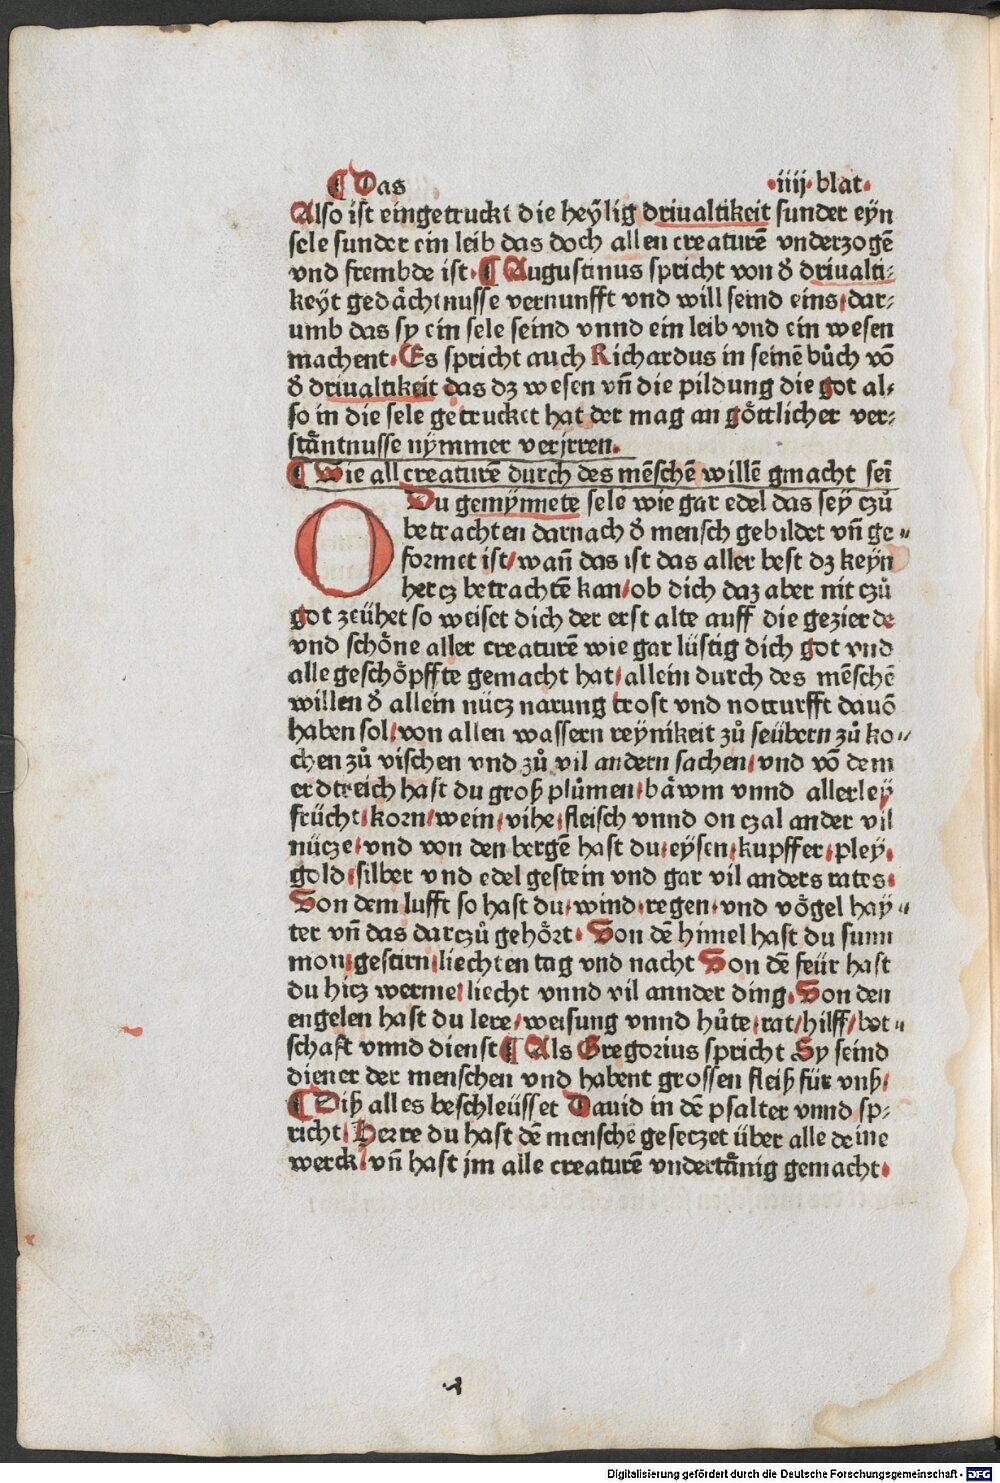 ¶ Das ·iiij· blat·
Also ist eingetruckt die heÿlig driualtikeit sunder eyn
sele sunder ein leib das doch allen creaturē vnderzogē
vnd frembde ist· ¶ Augustinus spricht von d̕ driualti-
keyt gedåchtnusse vernunfft vnd will seind eins/ dar-
umb das sy ein sele seind vnnd ein leib vnd ein wesen
machent· Es spricht auch Richardus in seinē bůch vō
d̕ driualtikeit das dz wesen vn̄ die pildung die got al-
so in die sele getrucket hat der mag an gȯttlicher ver-
ståntnusse nÿmmer verjrren.
¶ Wie all creaturē durch des mēschē willē gmacht sei
O Du gemÿnnete sele wie gar edel das sey czů
betrachten darnach d̕ mensch gebildet vn̄ ge-
formet ist/ wan̄ das ist das aller best dz keÿn
hercz betrachtē kan/ ob dich daz aber nit czů
got zeühet so weiset dich der erst alte auff die gezierde
vnd schöne aller creaturē wie gar lüstig dich got vnd
alle geschöpffte gemacht hat/ allein durch des mēschē
willen d̕ allein nücz narung trost vnd notturfft dauō
haben sol/ von allen wassern reÿnikeit zů seübern zů ko-
chen zů vischen vnd zů vil andern sachen/ vnd vō dem
erdtreich hast du groß plůmen/ båwm vnnd allerleÿ
frücht/ korn/ wein/ vihe/ fleisch vnnd on czal ander vil
nücze/ vnd von den bergē hast du/ eÿsen/ kupffer/ pleÿ/
gold/ silber vnd edel gestein vnd gar vil anders rates·
Von dem lufft so hast du/ wind/ regen/ vnd vögel hay-
ter vn̄ das darczů gehört· Von dē himel hast du sunn
mon/ gestirn/ liechten tag vnd nacht Von dē feür hast
du hicz werme/ liecht vnnd vil annder ding· Von den
engelen hast du lere/ weisung vnnd hůte/ rat/ hilff/ bot-
schaft vnnd dienst ¶ Als Gregorius spricht Sy seind
diener der menschen vnd habent grossen fleiß für vnß/
¶ Diß alles beschleüsset Dauid in dē psalter vnnd sp-
richt/ Herre du hast dē menschē geseczet über alle deine
werck/ vn̄ hast jm alle creaturē vndertånig gemacht·
Digitalisierung gefördert durch die Deutsche Forschungsgemeinschaft - DFG